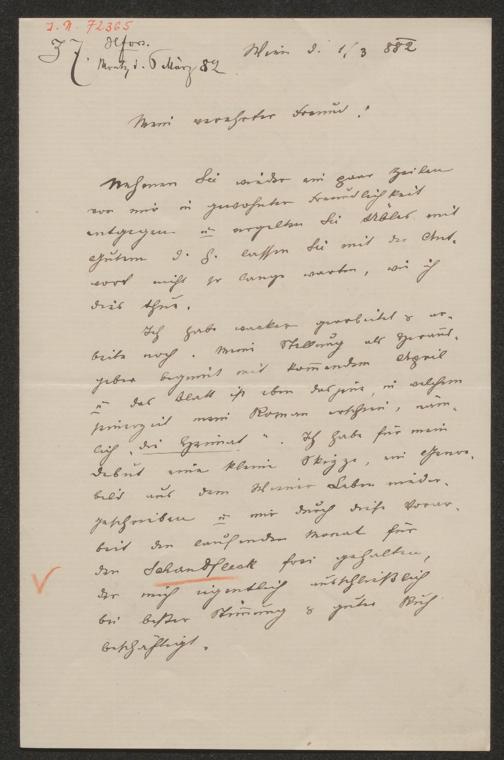 J. N. 72365
Wien d. 1/3 882
d. 6 März 82
Mein verehrter Freund!
Nehmen Sie wieder ein paar Zeilen
von mir in gewohnter Freundlichkeit
entgegen u vergelten Sie Übles mit
Gutem d. h. lassen Sie mit der Ant-
wort nicht so lange warten, wie ich
dies thue.
Ich habe wacker gearbeitet & ar-
beite noch. Meine Stellung als Heraus-
geber beginnt mit kommendem April
u das Blatt ist eben dasjene, in welchem
seinerzeit mein Roman erschien, näm-
lich „die Heimat“. Ich habe für mein
Debut eine kleine Skizze, ein Genre-
bild aus dem Wiener Leben nieder-
geschrieben u mir durch diese Vorar-
beit den laufenden Monat für
den Schandfleck frei gehalten,
der mich eigentlich ausschließlich
bei bester Stimmung & guter
beschäftigt.